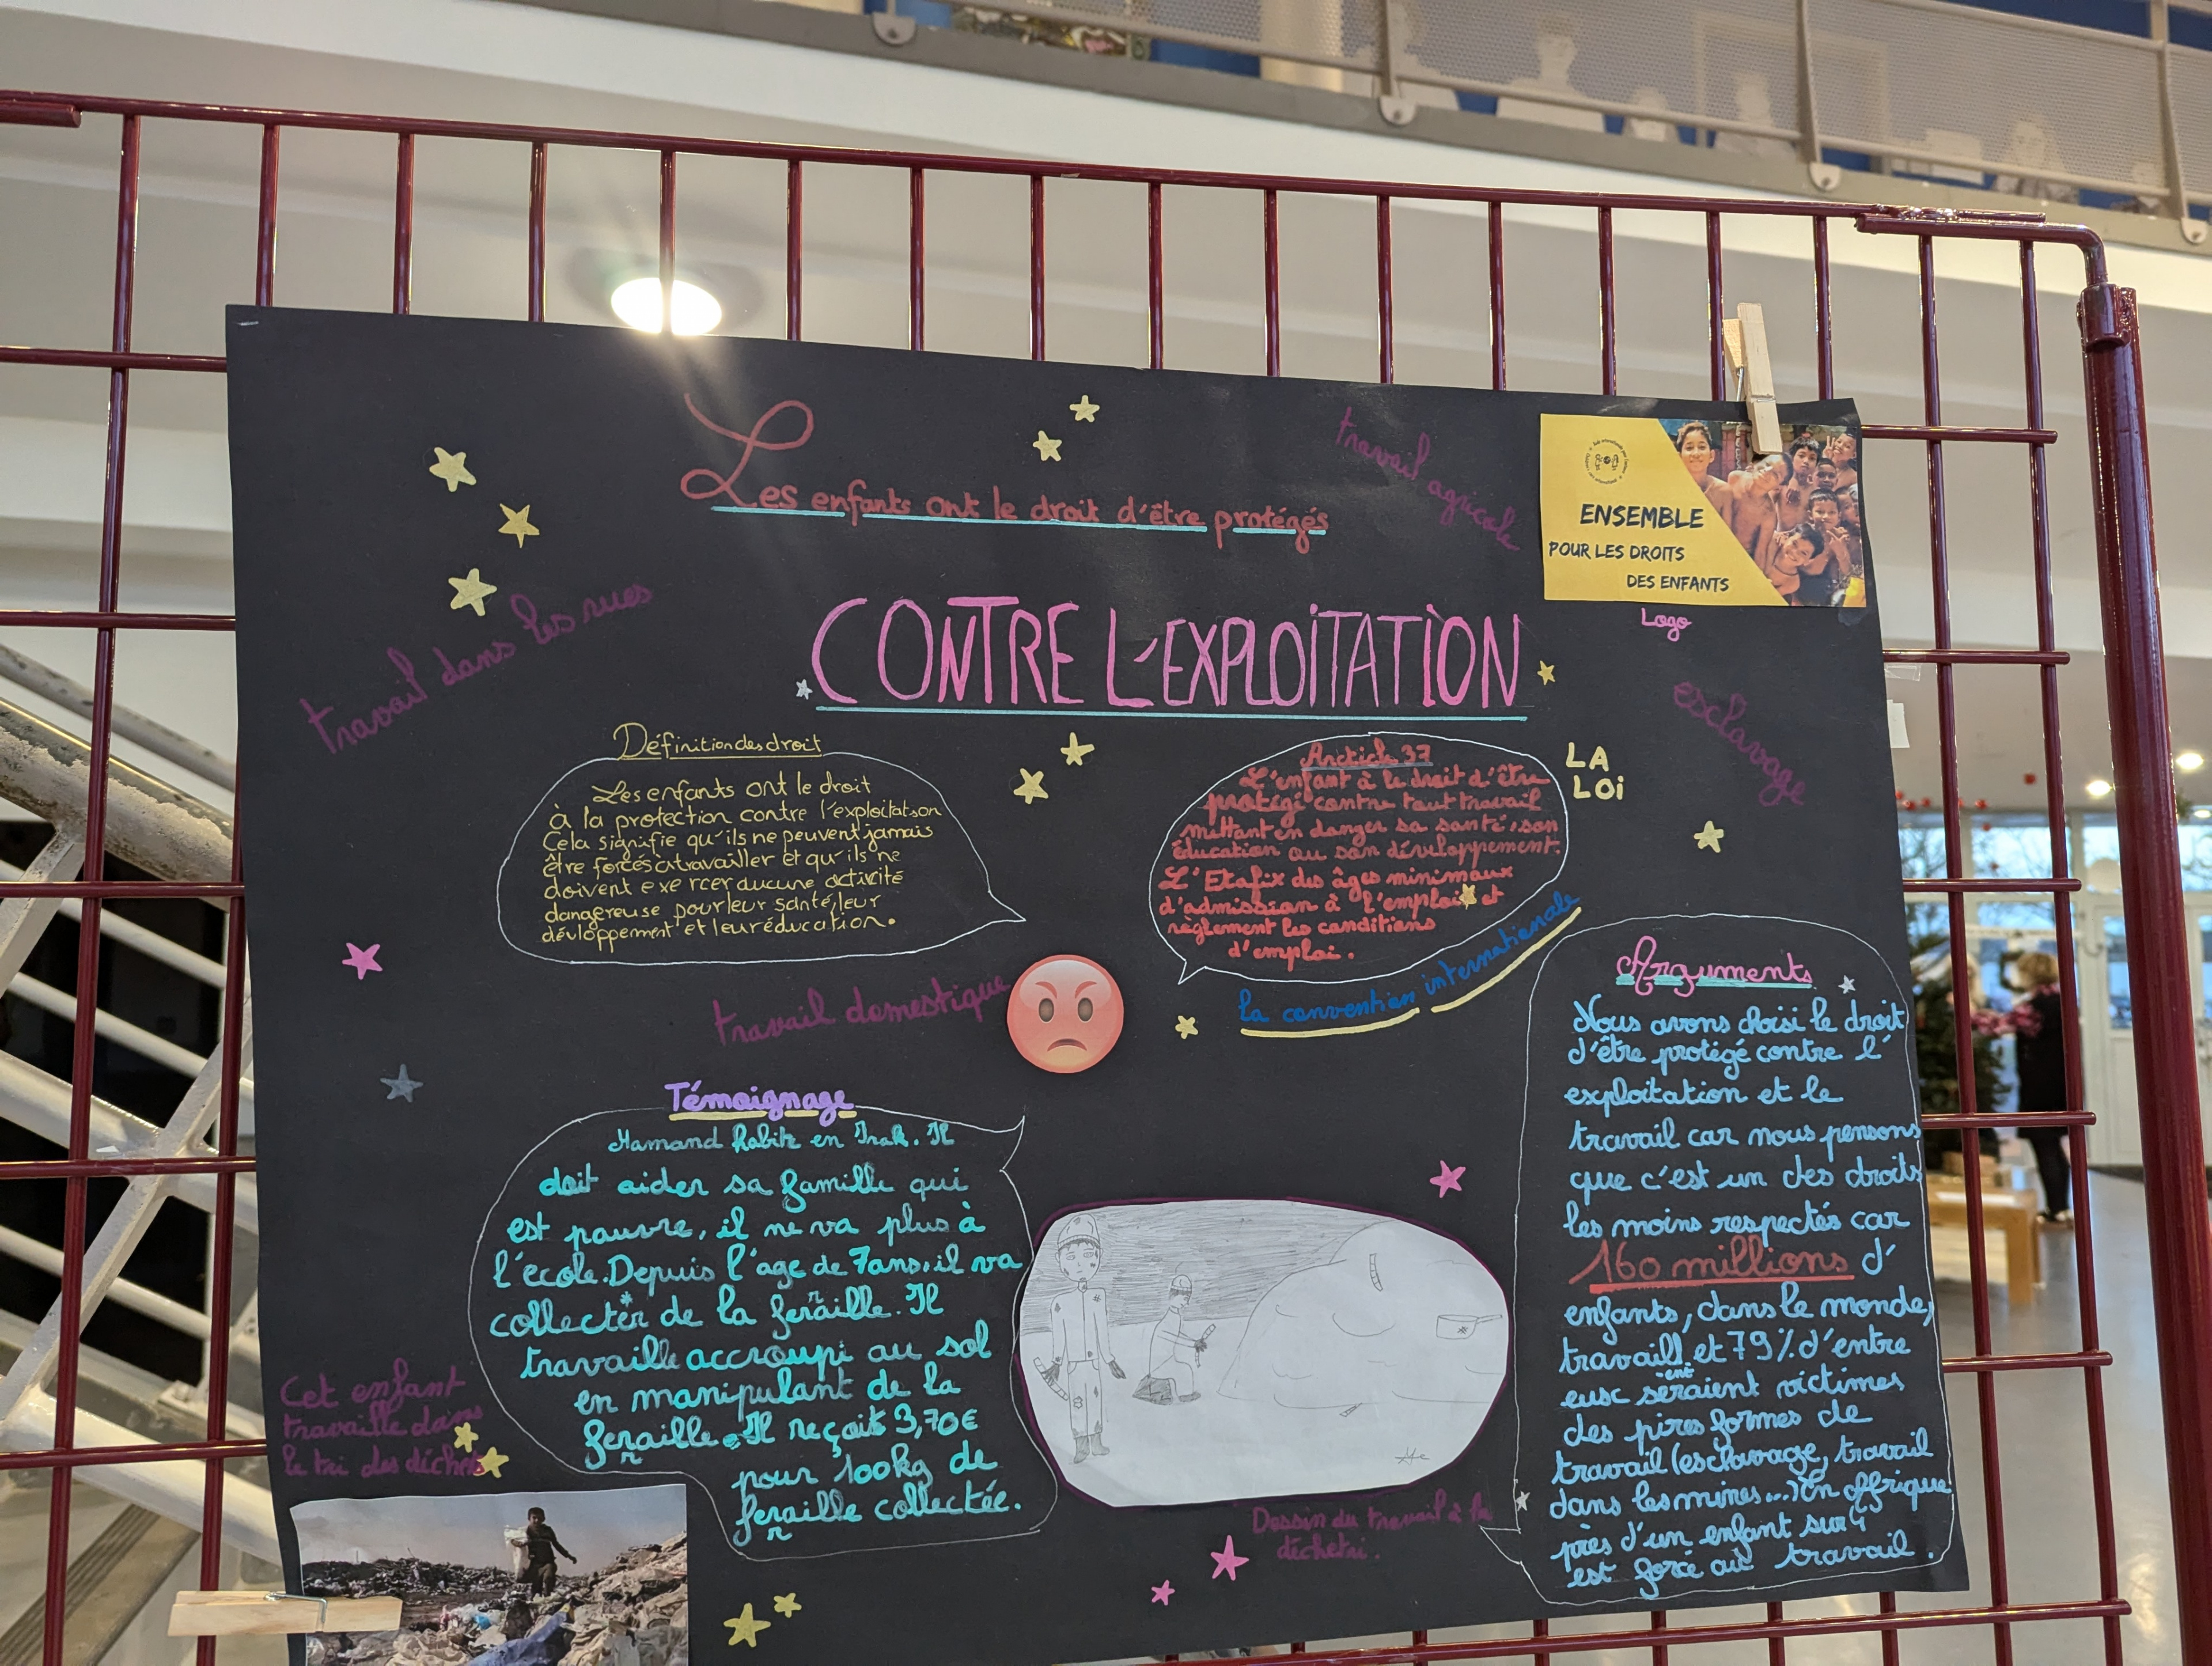 Les enfants ont le droit d'être protégés
travail agricole
ENSEMBLE
POUR LES DROITS
DES ENFANTS
Logo
travail dans les rues
CONTRE L'EXPLOITATION
esclavage
Définition des droit
Les enfants ont le droit
à la protection contre l'exploitation
Cela signifie qu'ils ne peuvent jamais
être forcés à travailler et qu'ils ne
doivent exercer aucune activité
dangereuse pour leur santé, leur
dévloppement et leur éducation.
LA
LOI
L'enfant à le droit d'être
protégé contre tout travail
mettant en danger sa santé, son
éducation ou son développement.
L'Etat fix des âges minimaux
d'admission à l'emploi et
règlement les conditions
d'emploi.
la convention internationale
travail domestique
Témoignage
Hamand habite en Irak. Il
doit aider sa famille qui
est pauvre, il ne va plus à
l'école. Depuis l'age de 7ans, il va
collecter de la feraille. Il
travaille accroupi au sol
en manipulant de la
feraille. Il reçoit 3,70€
pour 100kg de
feraille collectée.
Arguments
Nous avons choisi le droit
d'être protégé contre l'
exploitation et le
travail car nous pensons
que c'est un des droits
les moins respectés car
160 millions d'
enfants, dans le monde,
travaill et 79% d'entre
ent
eux seraient victimes
des pires formes de
travail (esclavage, travail
dans les mines...) En Affrique
près d'un enfant sur 4
est forcé au travail.
Cet enfant
travaille dans
le tri des déchets
Dessin du travail à la
déchetri.